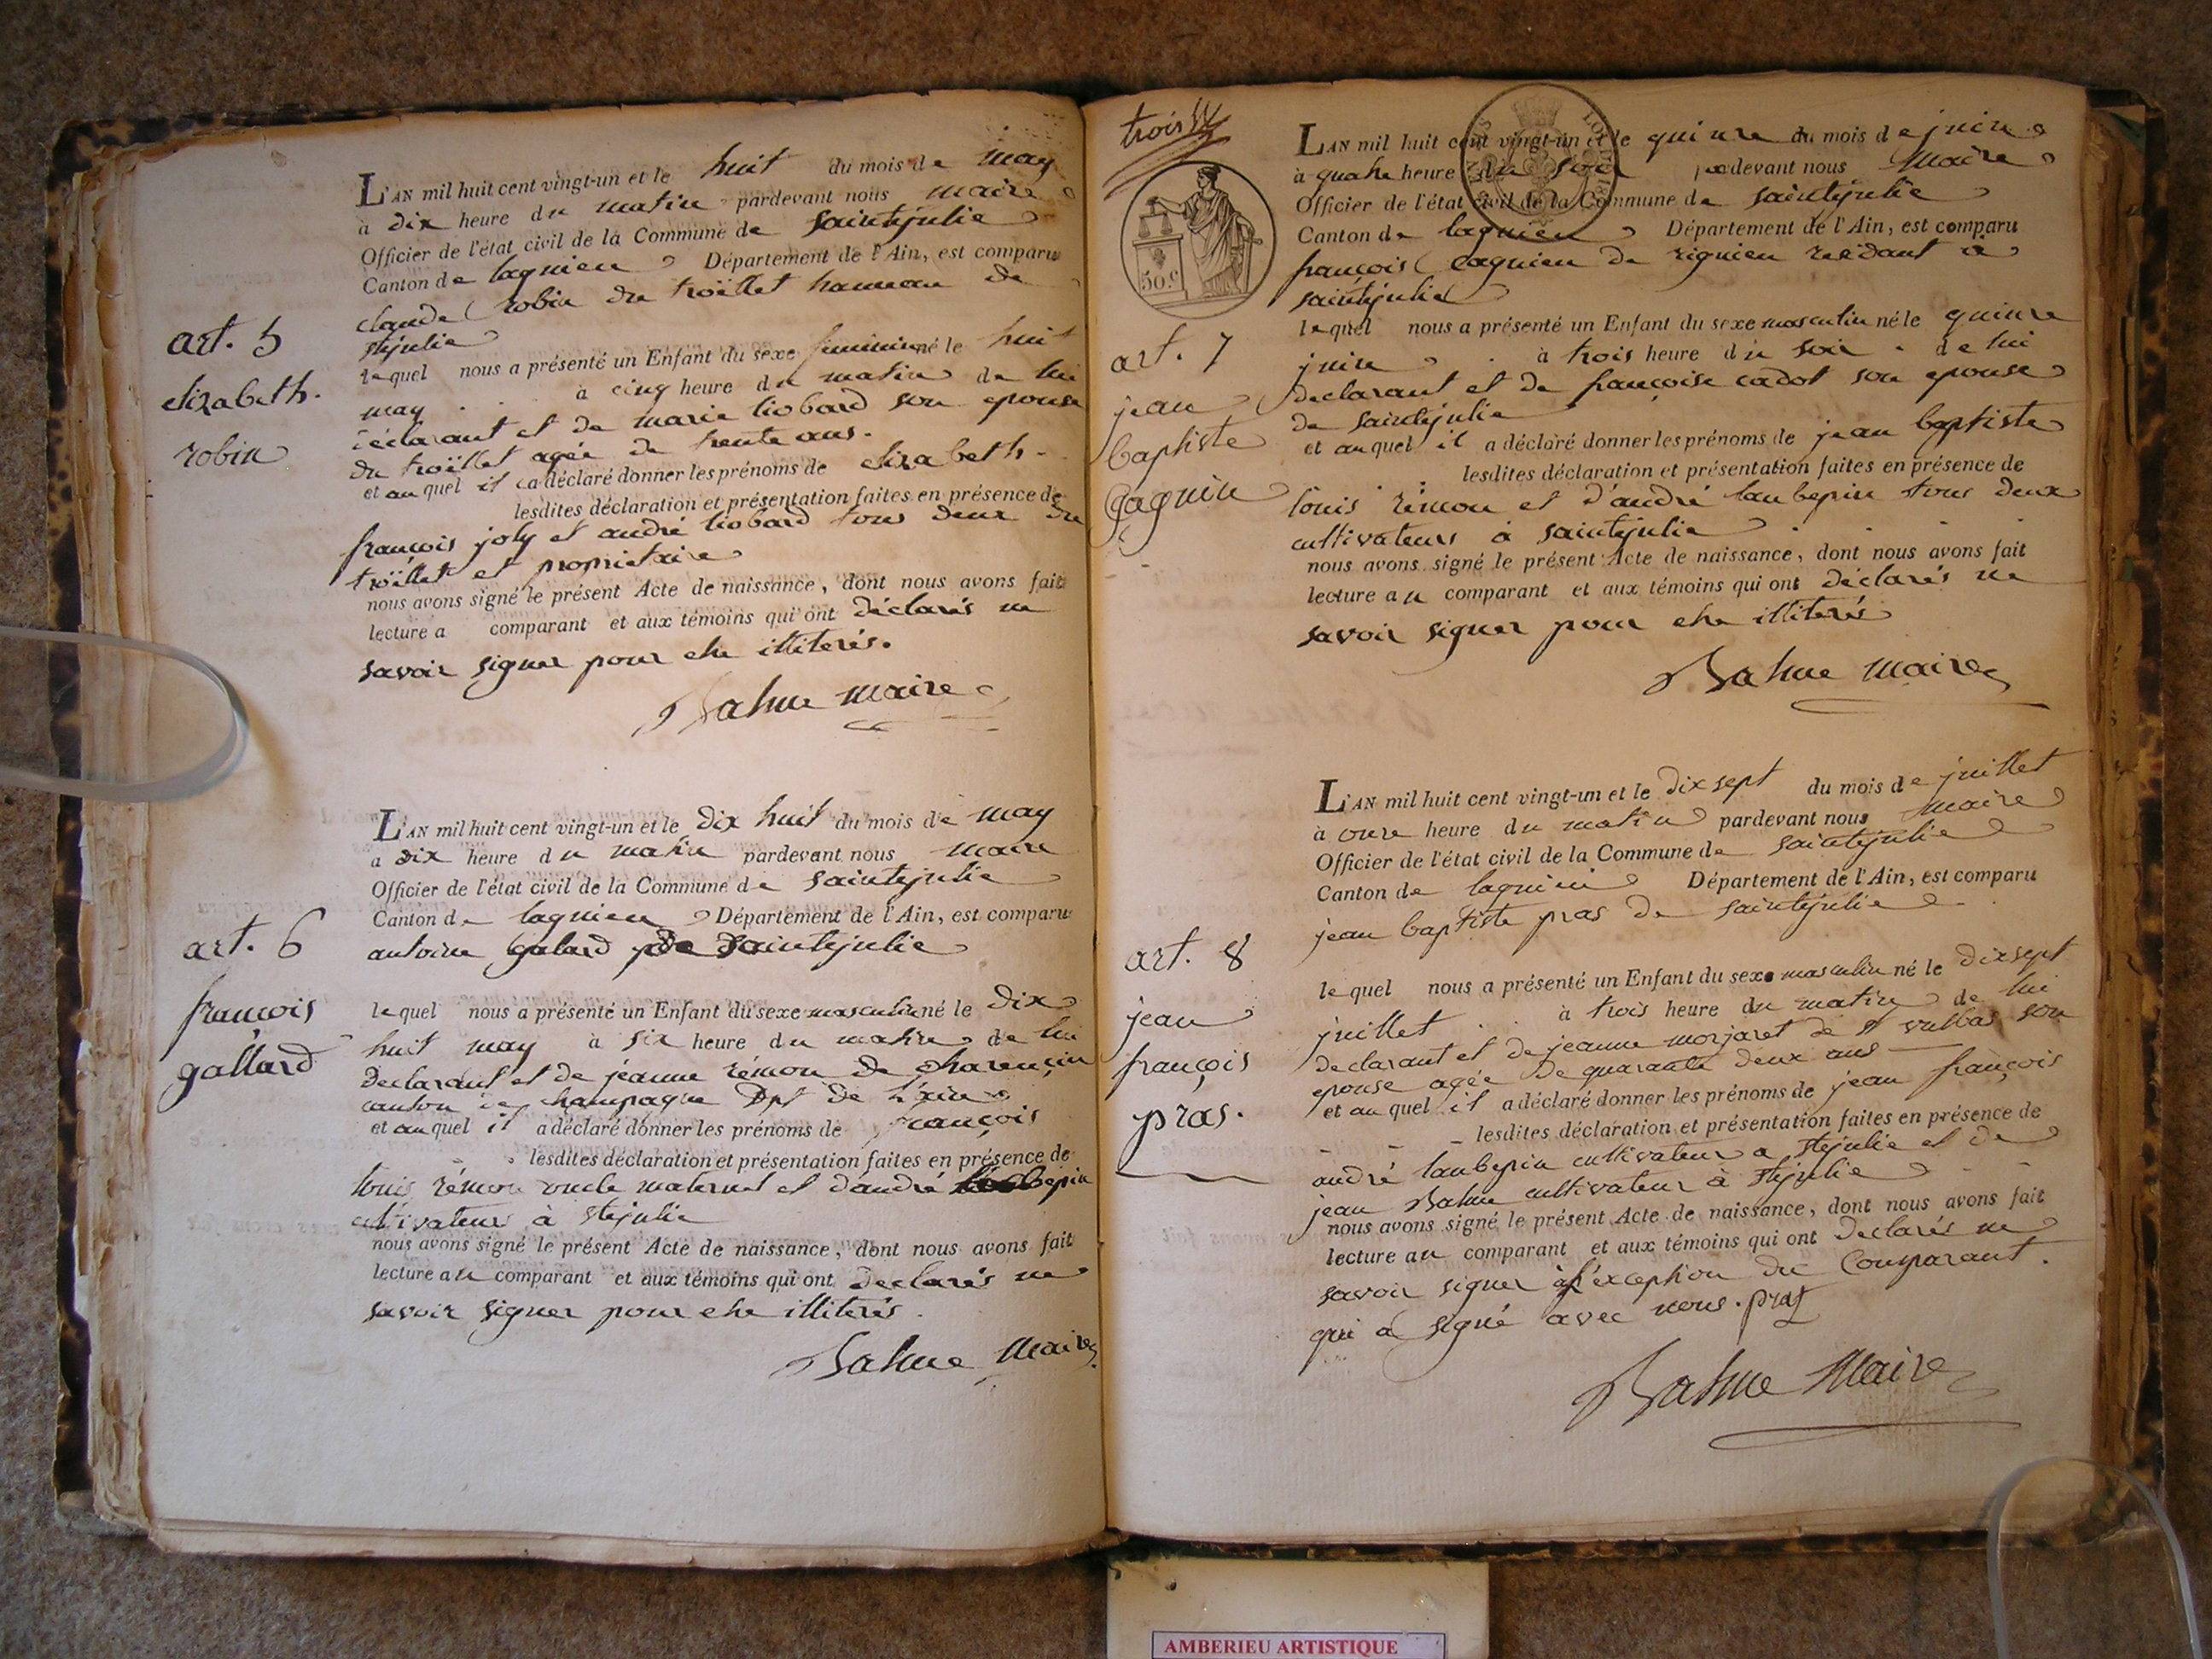 L'AN mil huit cent vingt-un et le huit du mois de may
à dix heure du matin pardevant nous maire
Officier de l'état civil de la Commune de saintejulie
Canton de lagnieu Département de l'Ain, est comparu
claude robin du troillet hameau de
stejulie
art. 5
elizabeth.
robin
lequel nous a présenté un Enfant du sexe feminin né le huit
may à cinq heure du matin de lui
déclarant et de marie liobard son epouse
du troillet agée de trente ans.
et au quel il a déclaré donner les prénoms de elizabeth
lesdites déclaration et présentation faites en présence de
françois joly et andré liobard tous deux du
troillet et proprietaire
nous avons signé le présent Acte de naissance, dont nous avons fait
lecture a comparant et aux témoins qui ont déclarés ne
savoir signer pour etre illiterés.
maire
L'AN mil huit cent vingt-un et le dix huit du mois de may
a dix heure du matin pardevant nous maire
Officier de l'état civil de la Commune de saintejulie
Canton de lagnieu Département de l'Ain, est comparu
antoine galard de saintejulie
art. 6
françois
gallard
lequel nous a présenté un Enfant du sexe masculin né le dix
huit may à six heure du matin de lui
declarant et de jeanne rémon de charencin
canton de champagne Dpt de l'ain
et au quel il a déclaré donner les prénoms de françois
lesdites déclaration et présentation faites en présence de
louis rémon oncle maternel et d'andré
cultivateurs à stejulie
nous avons signé le présent Acte de naissance, dont nous avons fait
lecture au comparant et aux témoins qui ont declarés ne
savoir signer pour etre illiterés.
Maire
trois
50 c.
L'AN mil huit cent vingt-un et le quinze du mois de juin
à quatre heure du soir pardevant nous Maire
Officier de l'état civil de la Commune de saintejulie
Canton de lagnieu Département de l'Ain, est comparu
françois gagnieu de rignieu residant à
saintejulie
art. 7
jean
baptiste
gagnin
lequel nous a présenté un Enfant du sexe masculin né le quinze
juin à trois heure du soir de lui
declarant et de françoise cadot son epouse
de saintejulie
et au quel il a déclaré donner les prénoms de jean baptiste
lesdites déclaration et présentation faites en présence de
louis rémon et d'andré laubepin tous deux
cultivateurs à saintejulie
nous avons signé le présent Acte de naissance, dont nous avons fait
lecture au comparant et aux témoins qui ont déclarés ne
savoir signer pour etre illiterés
maire
L'AN mil huit cent vingt-un et le dix sept du mois de juillet
à onze heure du matin pardevant nous Maire
Officier de l'état civil de la Commune de saintejulie
Canton de lagnieu Département de l'Ain, est comparu
jean baptiste pras de saintejulie
art. 8
jean
françois
pras.
lequel nous a présenté un Enfant du sexe masculin né le dix sept
juillet à trois heure du matin de lui
declarant et de jeanne morjaret de st vulbas son
epouse agée de quarante deux ans
et au quel il a déclaré donner les prénoms de jean françois
lesdites déclaration et présentation faites en présence de
andré laubepin cultivateur a stejulie et de
jean cultivateur à stejulie
nous avons signé le présent Acte de naissance, dont nous avons fait
lecture au comparant et aux témoins qui ont declarés ne
savoir signer à l'exception du Comparant.
qui a signé avec nous. pras
Maire
AMBERIEU ARTISTIQUE